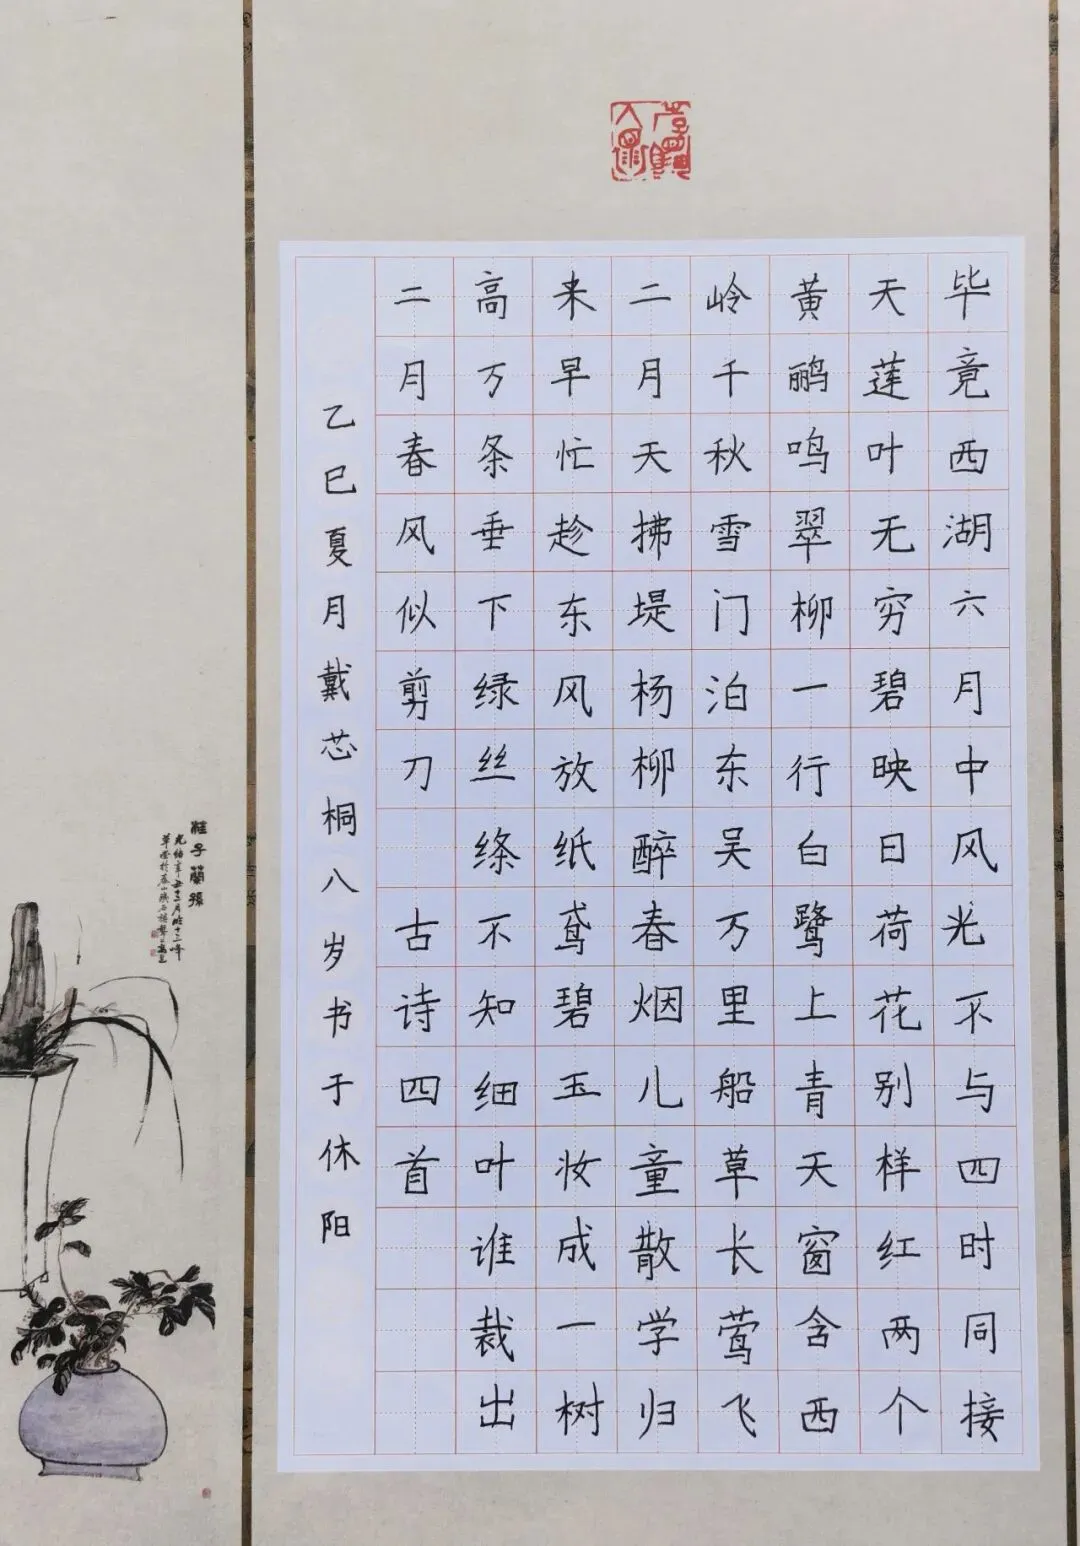 毕竟西湖六月中风光不与四时同接
天莲叶无穷碧映日荷花别样红两个
黄鹂鸣翠柳一行白鹭上青天窗含西
岭千秋雪门泊东吴万里船草长莺飞
二月天拂堤杨柳醉春烟儿童散学归
来早忙趁东风放纸鸢碧玉妆成一树
高万条垂下绿丝绦不知细叶谁裁出
二月春风似剪刀 古诗四首
乙巳夏月戴芯桐八岁书于休阳